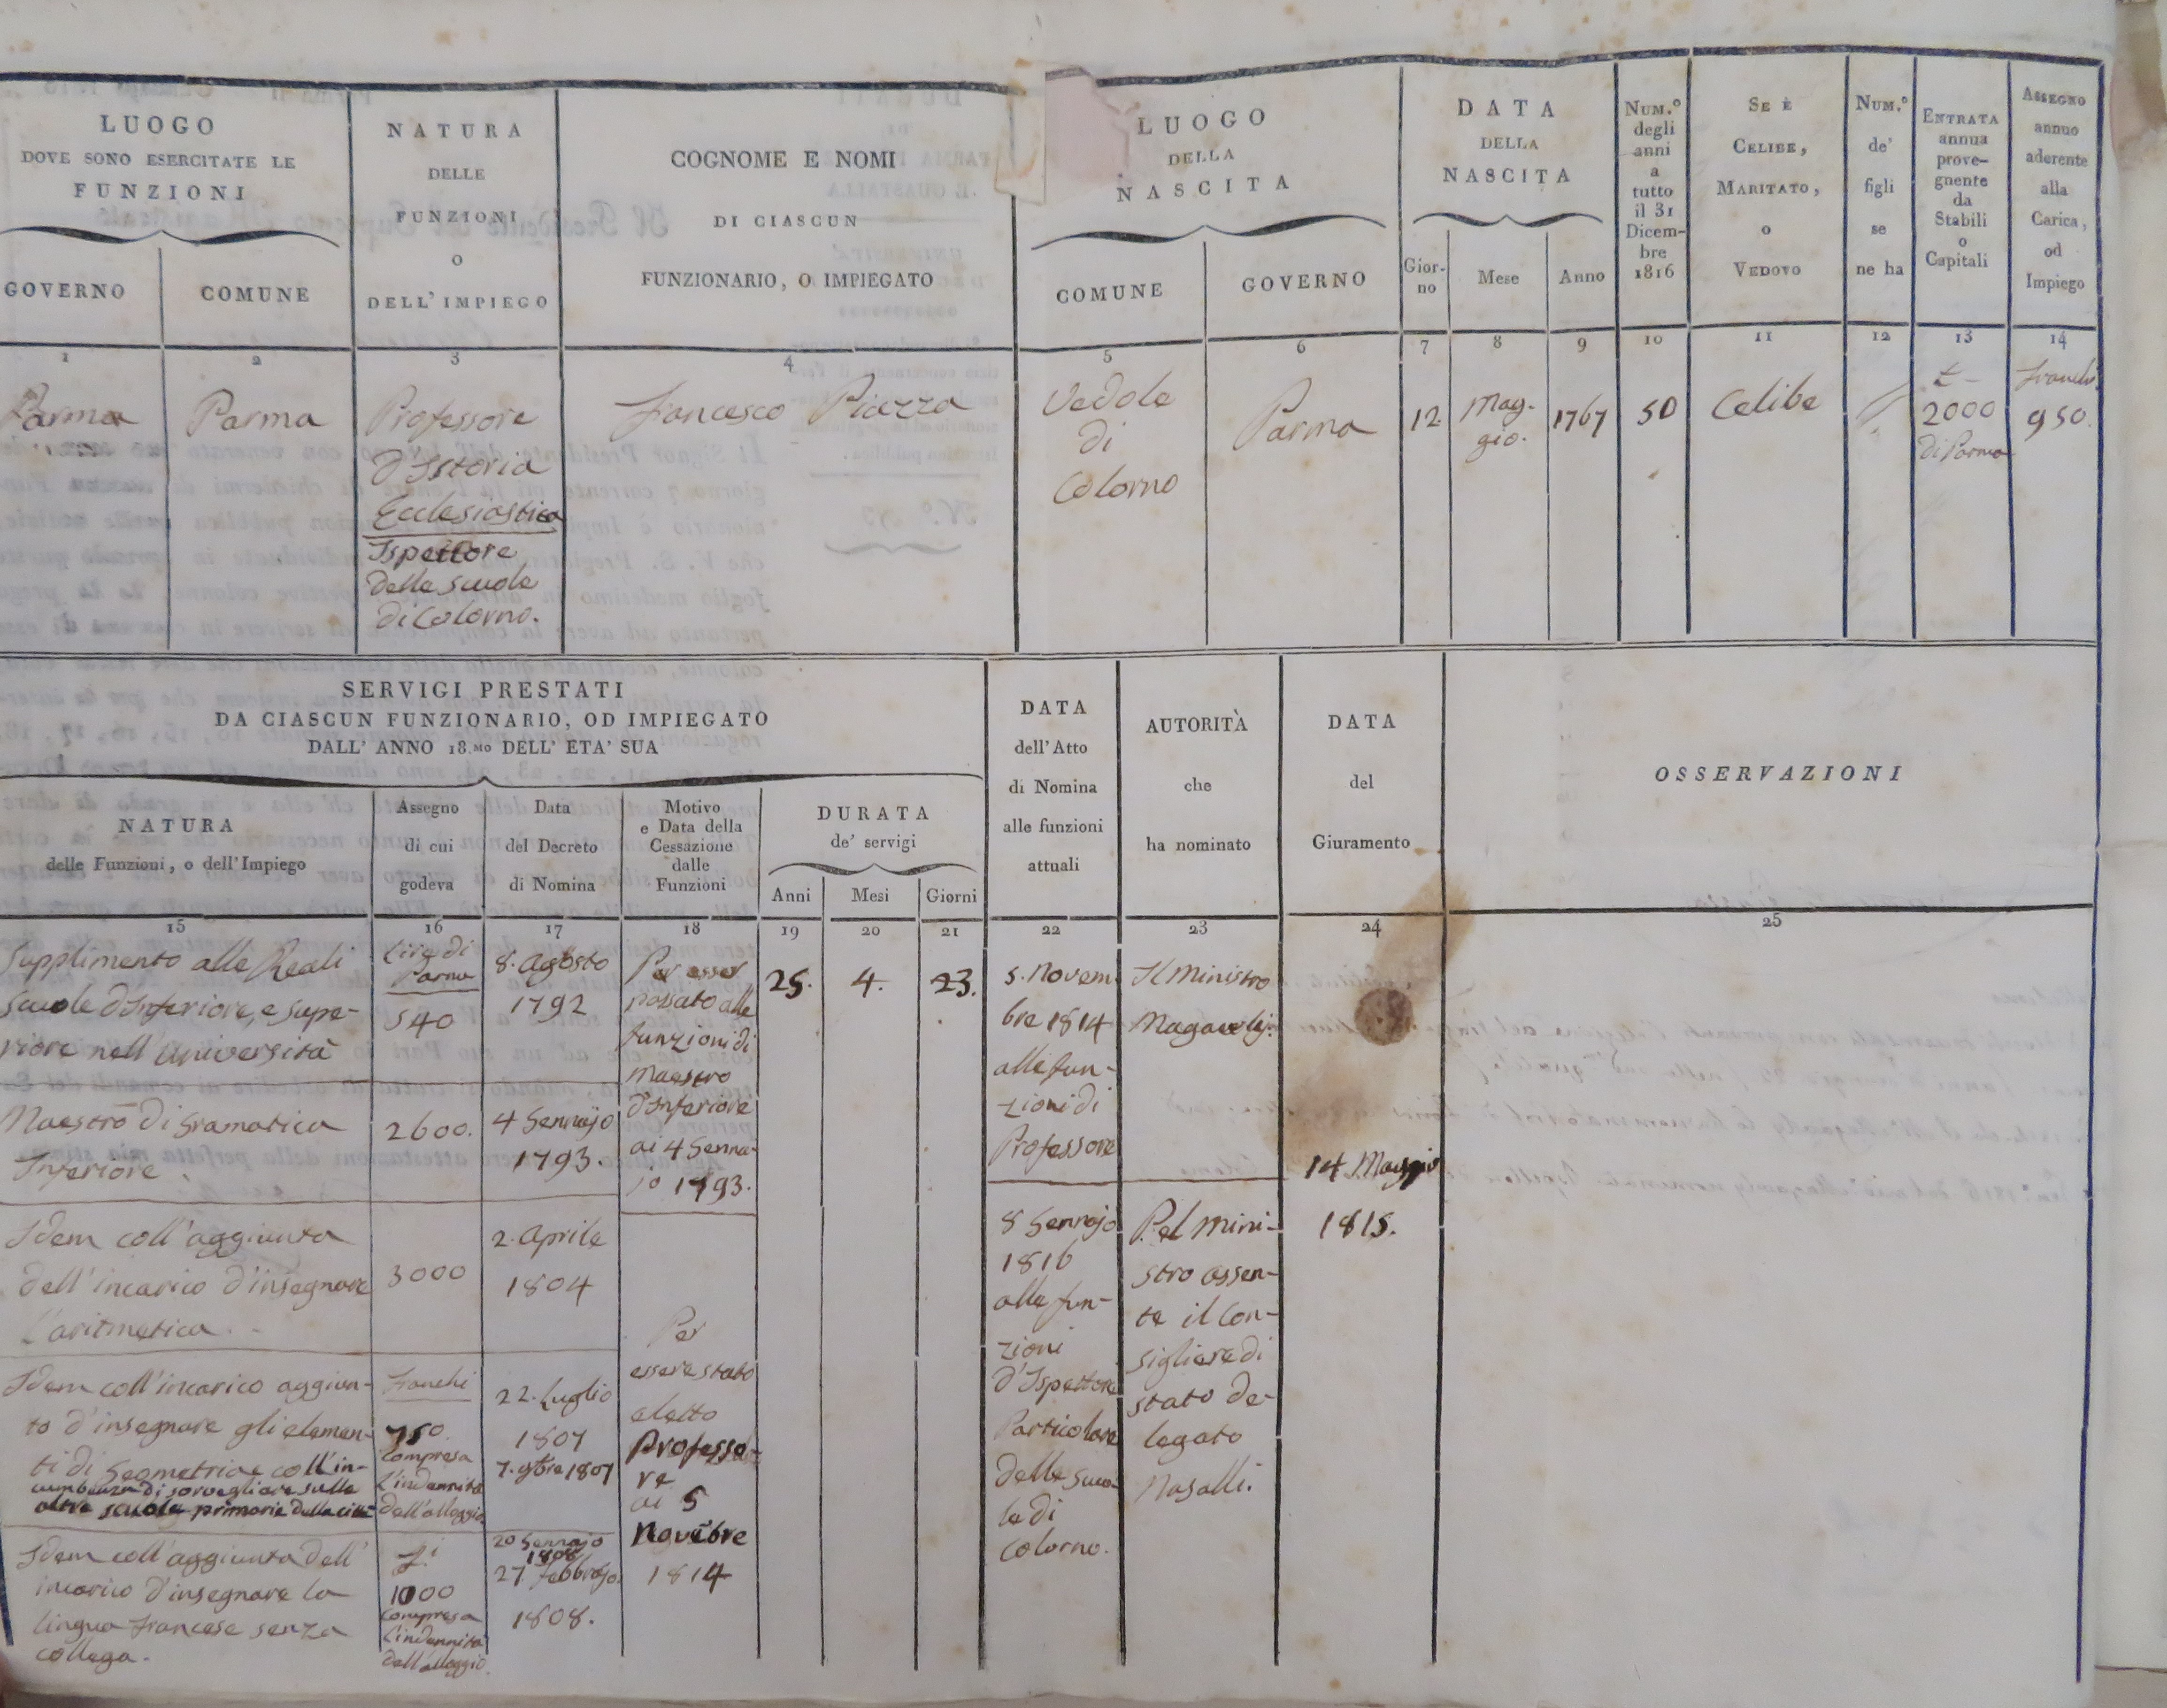 LUOGO
DOVE SONO ESERCITATE LE
FUNZIONI
GOVERNO
COMUNE
NATURA
DELLE
FUNZIONI
O
DELL' IMPIEGO
COGNOME E NOMI
DI CIASCUN
FUNZIONARIO, O IMPIEGATO
LUOGO
DELLA
NASCITA
COMUNE
GOVERNO
DATA
DELLA
NASCITA
Gior-
no
Mese
Anno
NUM.º
degli
anni
a
tutto
il 31
Dicem-
bre
1816
SE È
CELIBE,
MARITATO,
O
VEDOVO
NUM.º
de'
figli
se
ne ha
ENTRATA
annua
prove-
gnente
da
Stabili
o
Capitali
ASSEGNO
annuo
aderente
alla
Carica,
od
Impiego
1 2 3 4 5 6 7 8 9 10 11 12 13 14
Parma
Parma
Professore
d'Istoria
Ecclesiastica
Ispettore
delle scuole
di Colorno.
Francesco Piazza
Vedole
di
Colorno
Parma
12.
Mag-
gio.
1767
50
Celibe
2000
di Parma
franchi
950.
SERVIGI PRESTATI
DA CIASCUN FUNZIONARIO, OD IMPIEGATO
DALL' ANNO 18.MO DELL' ETA' SUA
NATURA
delle Funzioni, o dell'Impiego
Assegno
di cui
godeva
Data
del Decreto
di Nomina
Motivo
e Data della
Cessazione
dalle
Funzioni
DURATA
de' servigi
Anni
Mesi
Giorni
DATA
dell'Atto
di Nomina
alle funzioni
attuali
AUTORITÀ
che
ha nominato
DATA
del
Giuramento
OSSERVAZIONI
15 16 17 18 19 20 21 22 23 24 25
Supplimento alle Reali
scuole d'Inferiore, e supe-
riore nell'Università
Lire di
Parma
540
8. Agosto
1792
Per esser
passato alle
funzioni di
Maestro
d'Inferiore
ai 4 Genna-
jo 1793.
25.
4.
23.
Maestro di Gramatica
Inferiore.
2600.
4 Gennajo
1793.
Idem coll'aggiunta
dell'incarico d'insegnare
l'aritmetica.
3000
2. Aprile
1804
Idem coll'incarico aggiun-
to d'insegnare gli elemen-
ti di Geometria e coll'in-
cumbenza di sorvegliare sulle
altre scuole primarie della città
franchi
750.
compresa
l'indennità
dell'alloggio
22. Luglio
1807
7. 9bre 1807
Per
essere stato
eletto
Professo-
re
ai 5
Novēbre
1814
Idem coll'aggiunta dell'
incarico d'insegnare la
lingua francese senza
collega.
f.i
1000
compresa
l'indennità
dell'alloggio.
20 Gennajo
1808
27. febbrajo.
1808.
5. Novem-
bre 1814
alle fun-
zioni di
Professore
Il Ministro
8 Gennajo
1816
alle fun-
zioni
d'Ispettore
Particolare
delle scuo-
le di
Colorno.
Pel mini-
stro assen-
te il Con-
sigliere di
stato de-
legato
Nasalli.
14. Maggio
1815.